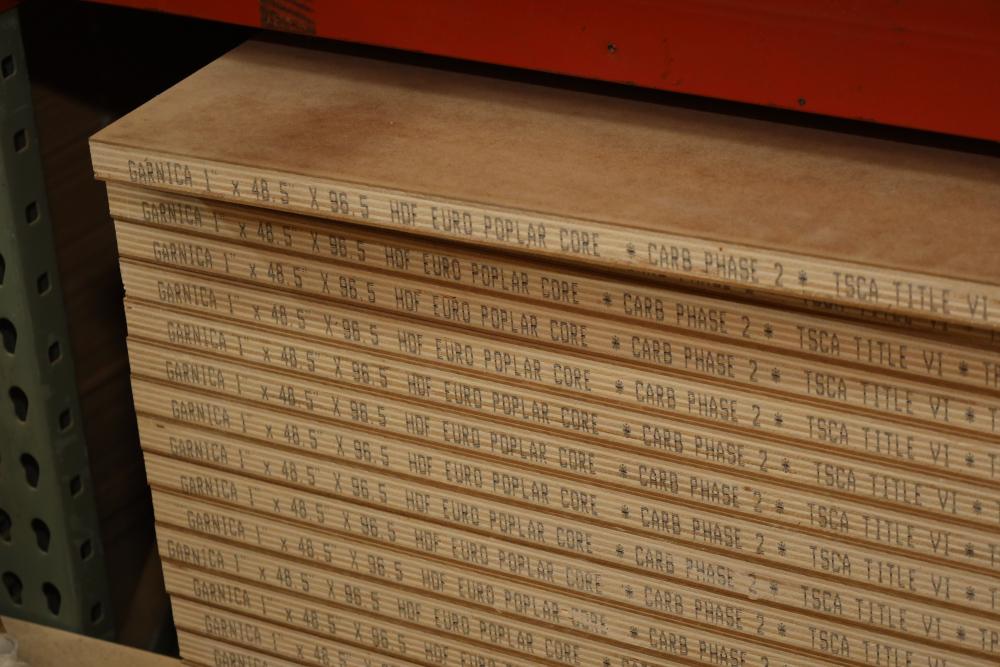 GARNICA 1" x 48.5" X 96.5 HDF EURO POPLAR CORE * CARB PHASE 2 * TSCA TITLE VI
GARNICA 1" x 48.5" X 96.5 HDF EURO POPLAR CORE * CARB PHASE 2 * TSCA TITLE VI *
GARNICA 1" x 48.5" X 96.5 HDF EURO POPLAR CORE * CARB PHASE 2 * TSCA TITLE VI * T
GARNICA 1" x 48.5" X 96.5 HDF EURO POPLAR CORE * CARB PHASE 2 * TSCA TITLE VI *
GARNICA 1" x 48.5" X 96.5 HDF EURO POPLAR CORE * CARB PHASE 2 * TSCA TITLE VI *
GARNICA 1" x 48.5" X 96.5 HDF EURO POPLAR CORE * CARB PHASE 2 * TSCA TITLE VI * T
GARNICA 1" x 48.5" X 96.5 HDF EURO POPLAR CORE * CARB PHASE 2 * TSCA TITLE VI * T
GARNICA 1" x 48.5" X 96.5 HDF EURO POPLAR CORE * CARB PHASE 2 * TSCA TITLE VI *
GARNICA 1" x 48.5" X 96.5 HDF EURO POPLAR CORE * CARB PHASE 2 * TSCA TITLE VI * TA
GARNICA 1" x 48.5" X 96.5 HDF EURO POPLAR CORE * CARB PHASE 2 * TSCA TITLE VI
GARNICA 1" x 48.5" X 96.5 HDF EURO POPLAR CORE * CARB PHASE 2 *
GARNICA 1" x 48.5" X 96.5 HDF EURO POPLAR CORE * CARB
GARNICA 1" x 48.5" X 96.5 HDF EURO POPLAR
GARNICA 1"